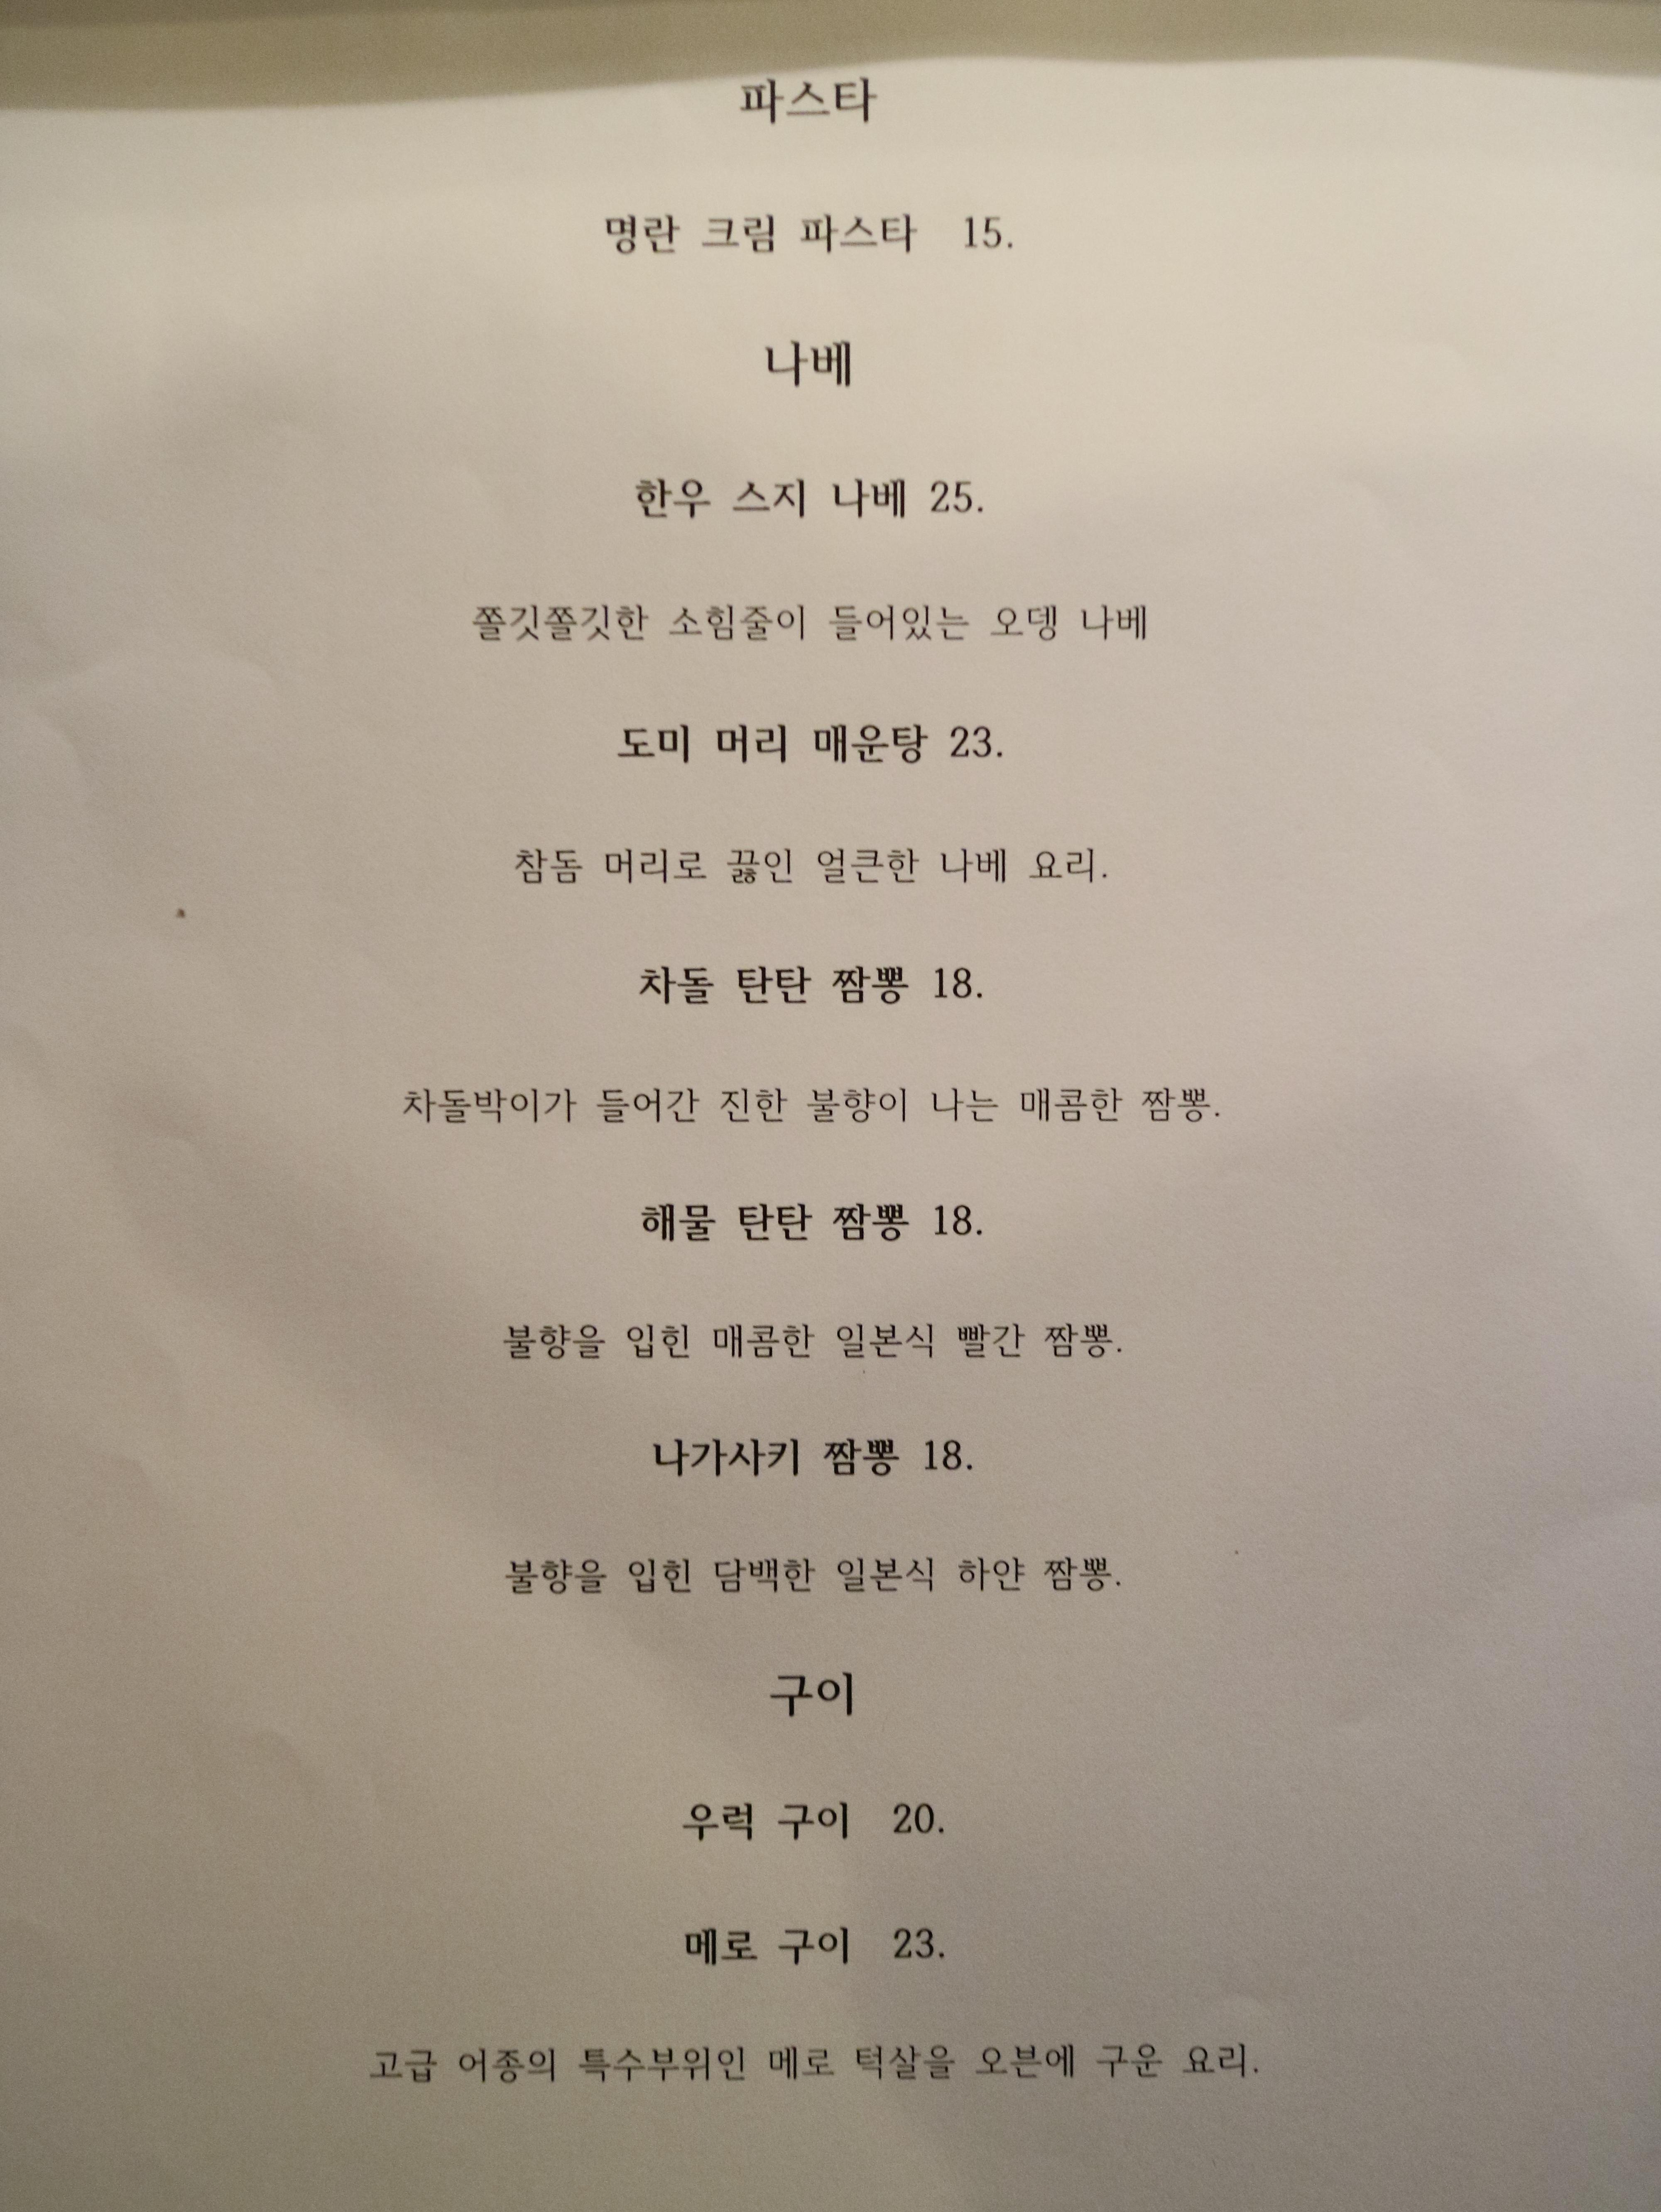 파스타
명란 크림 파스타 15.
나베
한우 스지 나베 25.
쫄깃쫄깃한 소힘줄이 들어있는 오뎅 나베
도미 머리 매운탕 23.
참돔 머리로 끓인 얼큰한 나베 요리.
차돌 탄탄 짬뽕 18.
차돌박이가 들어간 진한 불향이 나는 매콤한 짬뽕.
해물 탄탄 짬뽕 18.
불향을 입힌 매콤한 일본식 빨간 짬뽕.
나가사키 짬뽕 18.
불향을 입힌 담백한 일본식 하얀 짬뽕.
구이
우럭 구이 20.
메로 구이 23.
고급 어종의 특수부위인 메로 턱살을 오븐에 구운 요리.